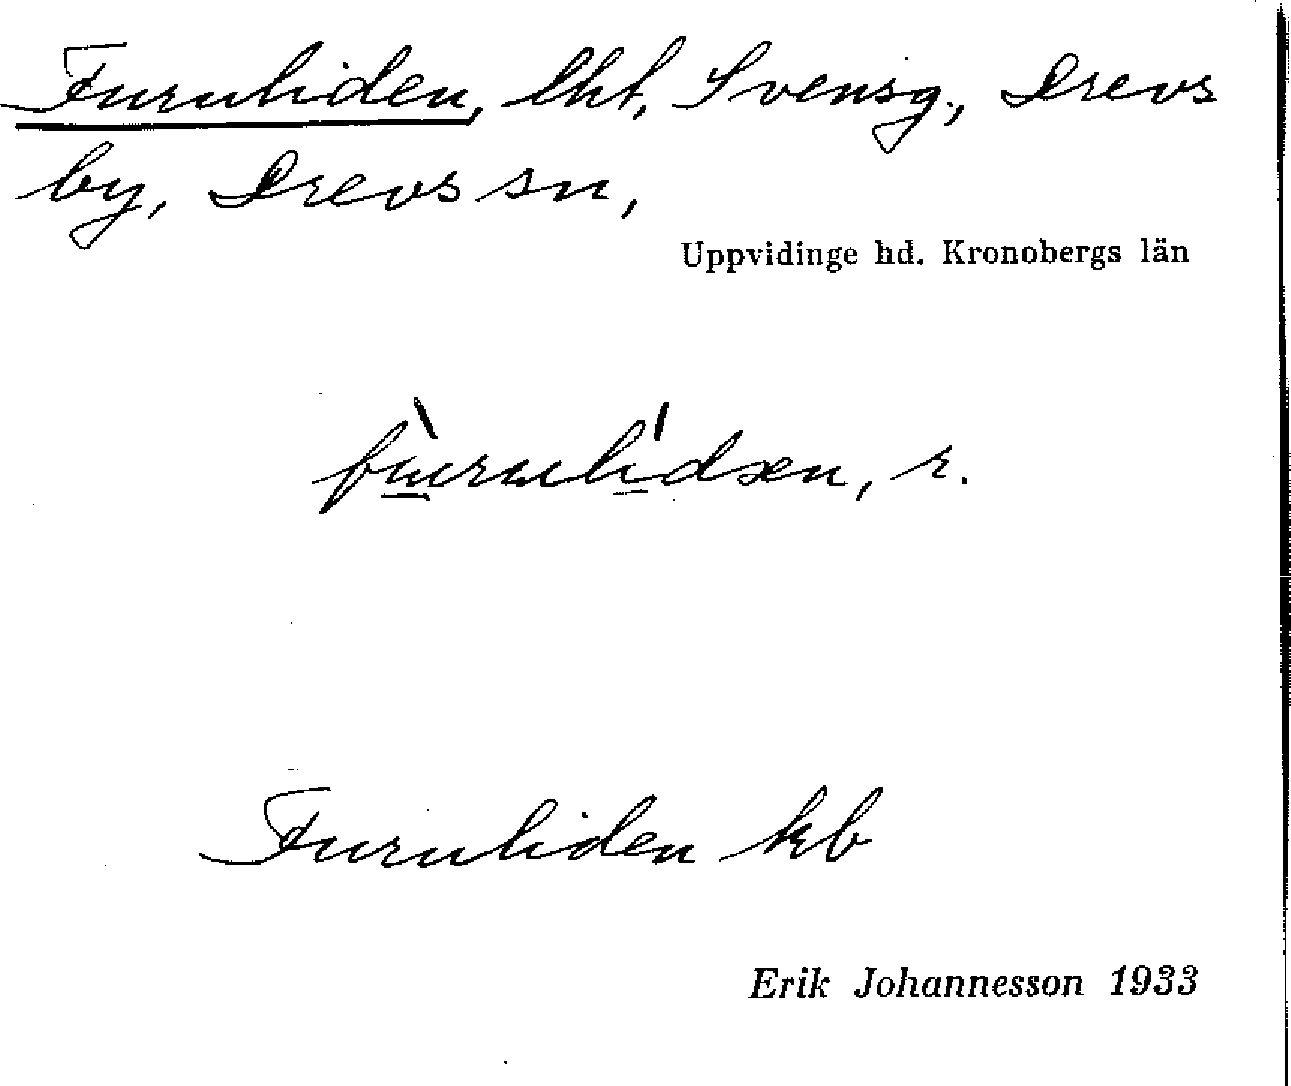 Furuliden, lht, Svensg., Drevs
by, Drevs sn,
Uppvidinge hd. Kronobergs län
fùrulídæn, r.
Furuliden kb
Erik Johannesson 1933